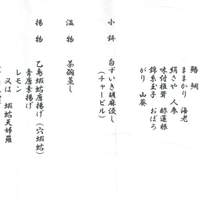 鮨鯛
ままかり 海老
絹さや 人参
味付椎茸 酢蓮根
錦糸玉子 おぼろ
がり 山葵
小鉢
白ずいき胡麻浸し
(チャービル)
温物
茶碗蒸し
揚物
乙島蝦蛄唐揚げ(穴蝦蛄)
青唐素揚げ
レモン
又は 蝦蛄天婦羅